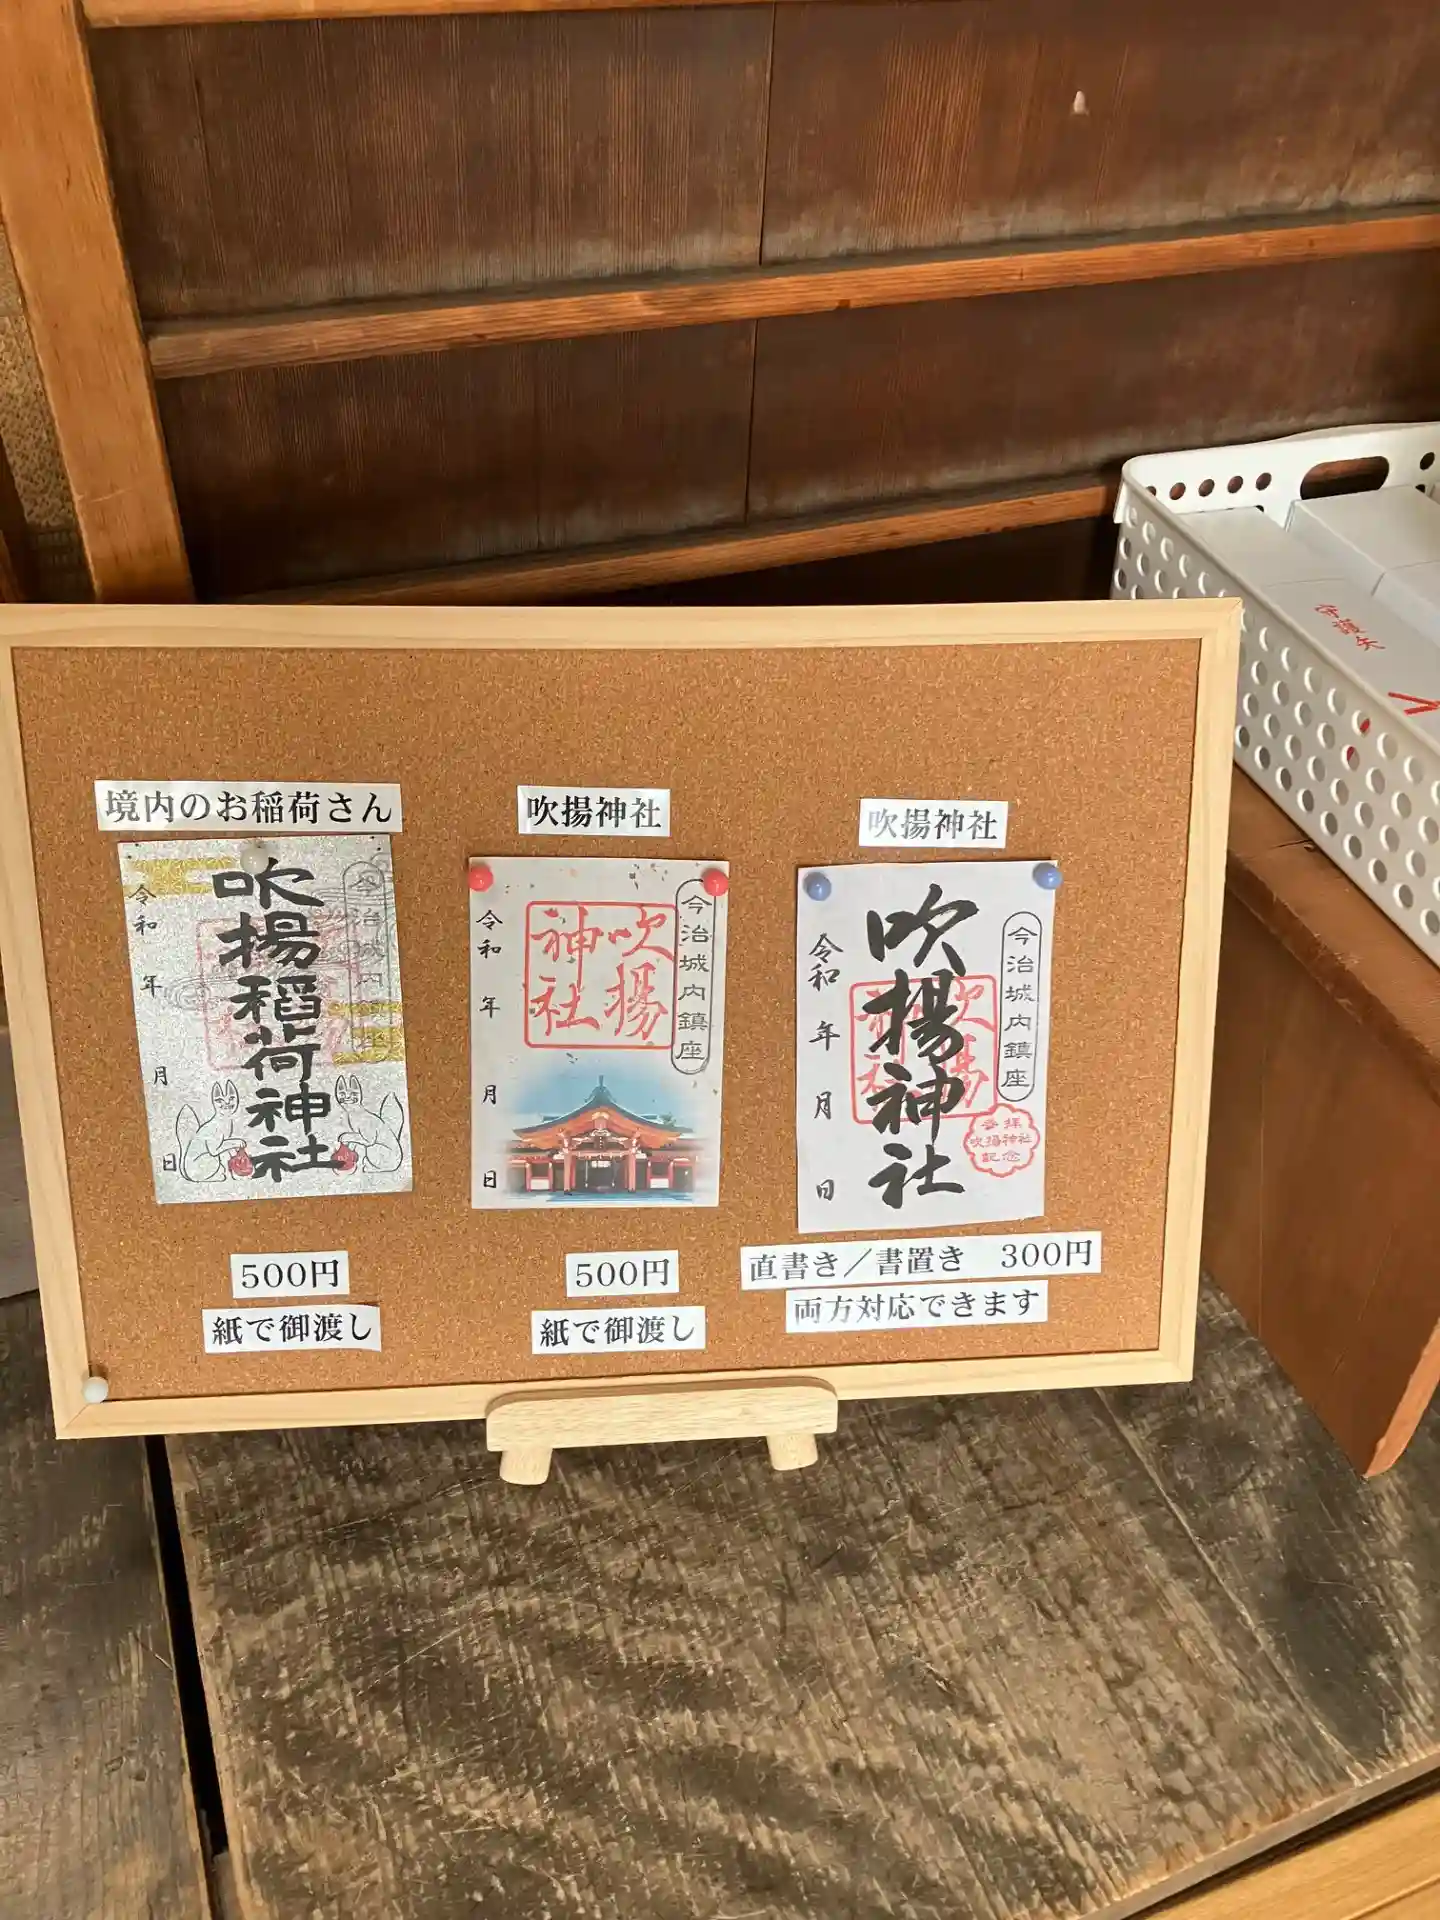 境内のお稲荷さん
今治城内鎮座
吹揚稲荷神社
令和 年 月 日
500円
紙で御渡し
吹揚神社
今治城内鎮座
吹揚
神社
令和 年 月 日
500円
紙で御渡し
吹揚神社
今治城内鎮座
参拝
吹揚神社
記念
吹揚神社
吹揚
神社
令和 年 月 日
直書き／書置き 300円
両方対応できます
守護矢